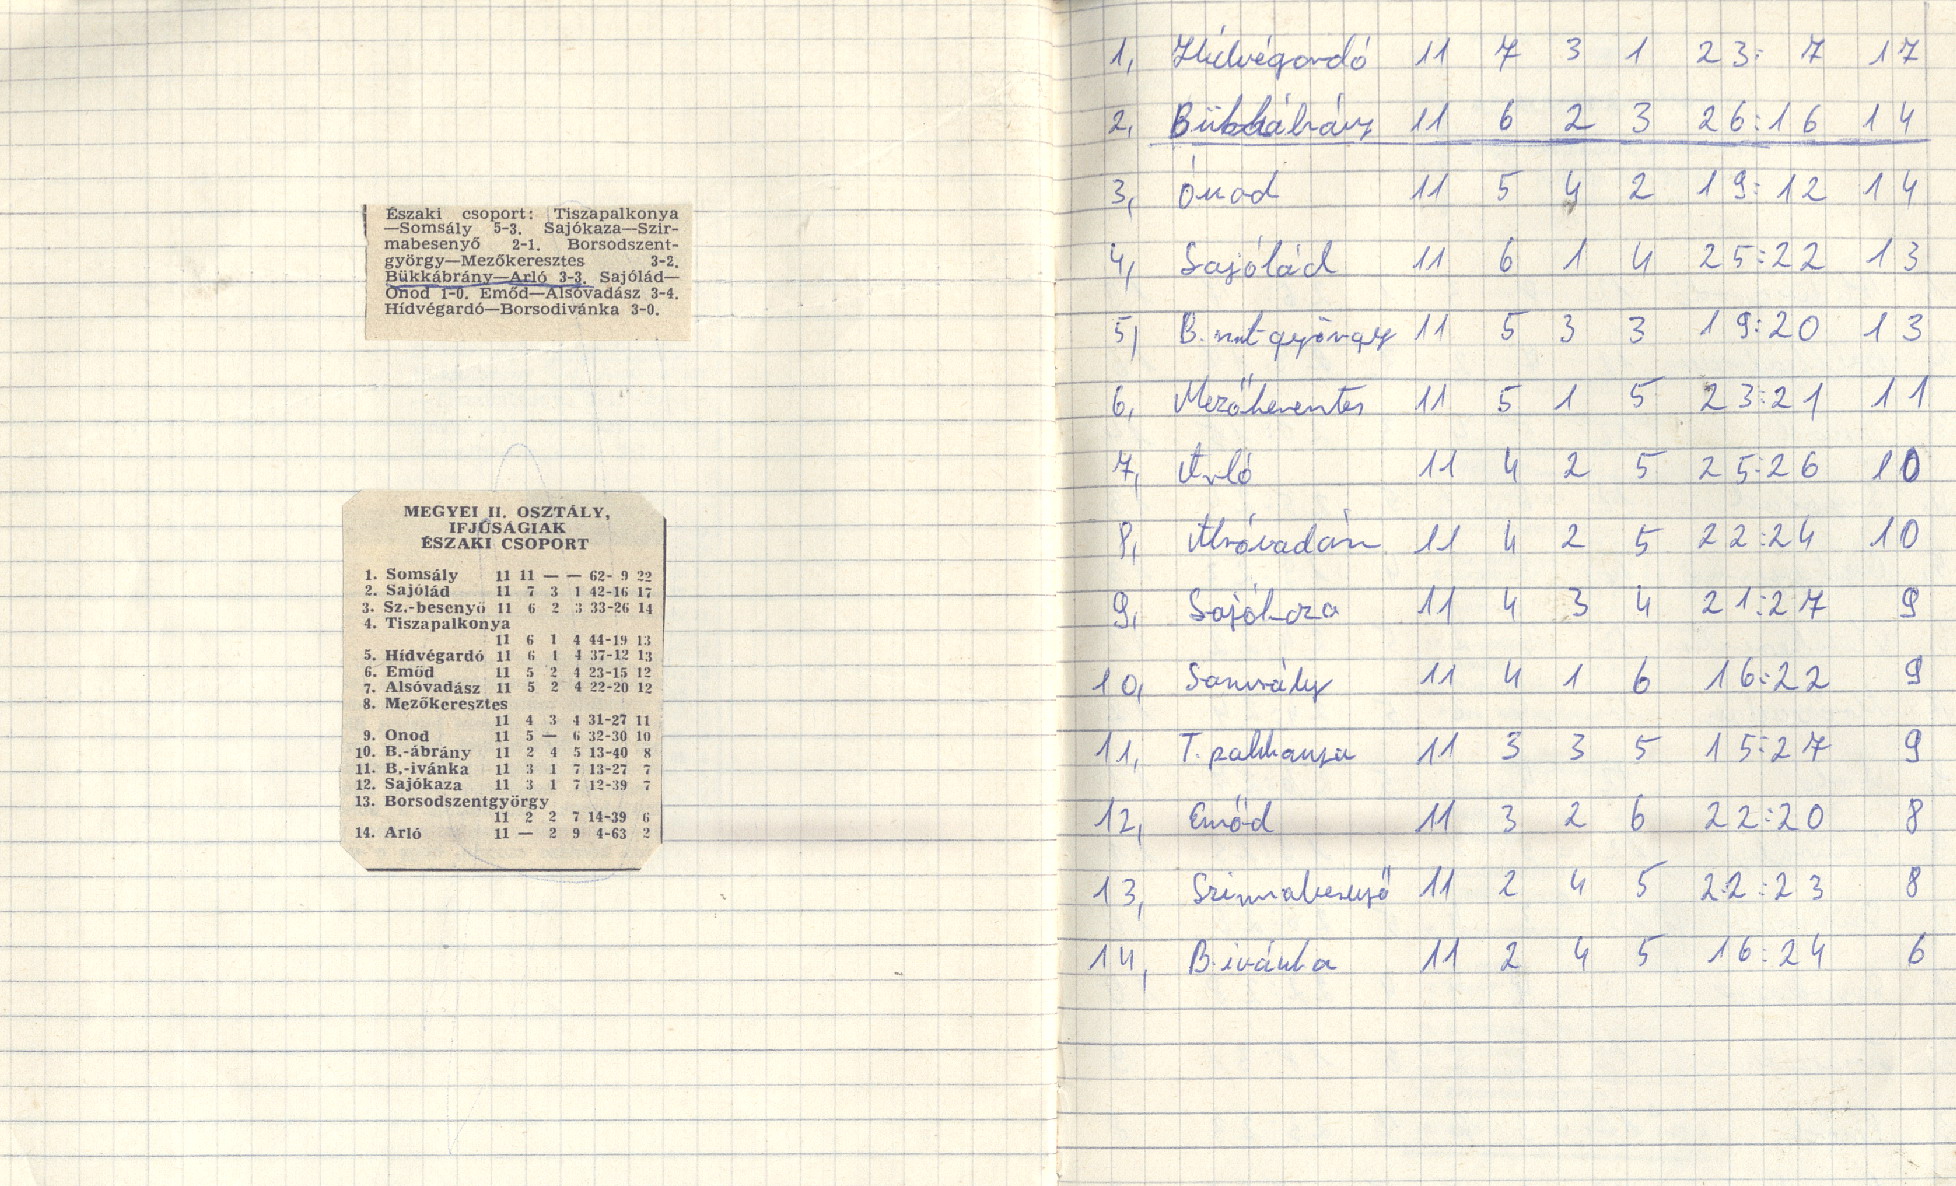 Északi csoport: Tiszapalkonya
—Somsály 5-3. Sajókaza—Szir-
mabesenyő 2-1. Borsodszent-
györgy—Mezőkeresztes 3-2.
Bükkábrány—Arló 3-3. Sajólád—
Onod 1-0. Emőd—Alsóvadász 3-4.
Hídvégardó—Borsodivánka 3-0.
MEGYEI II. OSZTÁLY,
IFJÚSÁGIAK
ÉSZAKI CSOPORT
1. Somsály 11 11 — — 62- 9 22
2. Sajólád 11 7 3 1 42-16 17
3. Sz.-besenyő 11 6 2 3 33-26 14
4. Tiszapalkonya
11 6 1 4 44-19 13
5. Hídvégardó 11 6 1 4 37-12 13
6. Emőd 11 5 2 4 23-15 12
7. Alsóvadász 11 5 2 4 22-20 12
8. Mezőkeresztes
11 4 3 4 31-27 11
9. Onod 11 5 — 6 32-30 10
10. B.-ábrány 11 2 4 5 13-40 8
11. B.-ivánka 11 3 1 7 13-27 7
12. Sajókaza 11 3 1 7 12-39 7
13. Borsodszentgyörgy
11 2 2 7 14-39 6
14. Arló 11 — 2 9 4-63 2
1, Hídvégardó 11 7 3 1 23: 7 17
2, Bükkábrány 11 6 2 3 26:16 14
3, Ónod 11 5 4 2 19:12 14
4, Sajólád 11 6 1 4 25:22 13
5, B.szt györgy 11 5 3 3 19:20 13
6, Mezőkeresztes 11 5 1 5 23:21 11
7, Arló 11 4 2 5 25:26 10
8, Alsóvadász 11 4 2 5 22:24 10
9, Sajókaza 11 4 3 4 21:27 9
10, Somsály 11 4 1 6 16:22 9
11, T.palkonya 11 3 3 5 15:27 9
12, Emőd 11 3 2 6 22:20 8
13, Szirmabesenyő 11 2 4 5 22:23 8
14, B.ivánka 11 2 4 5 16:24 6